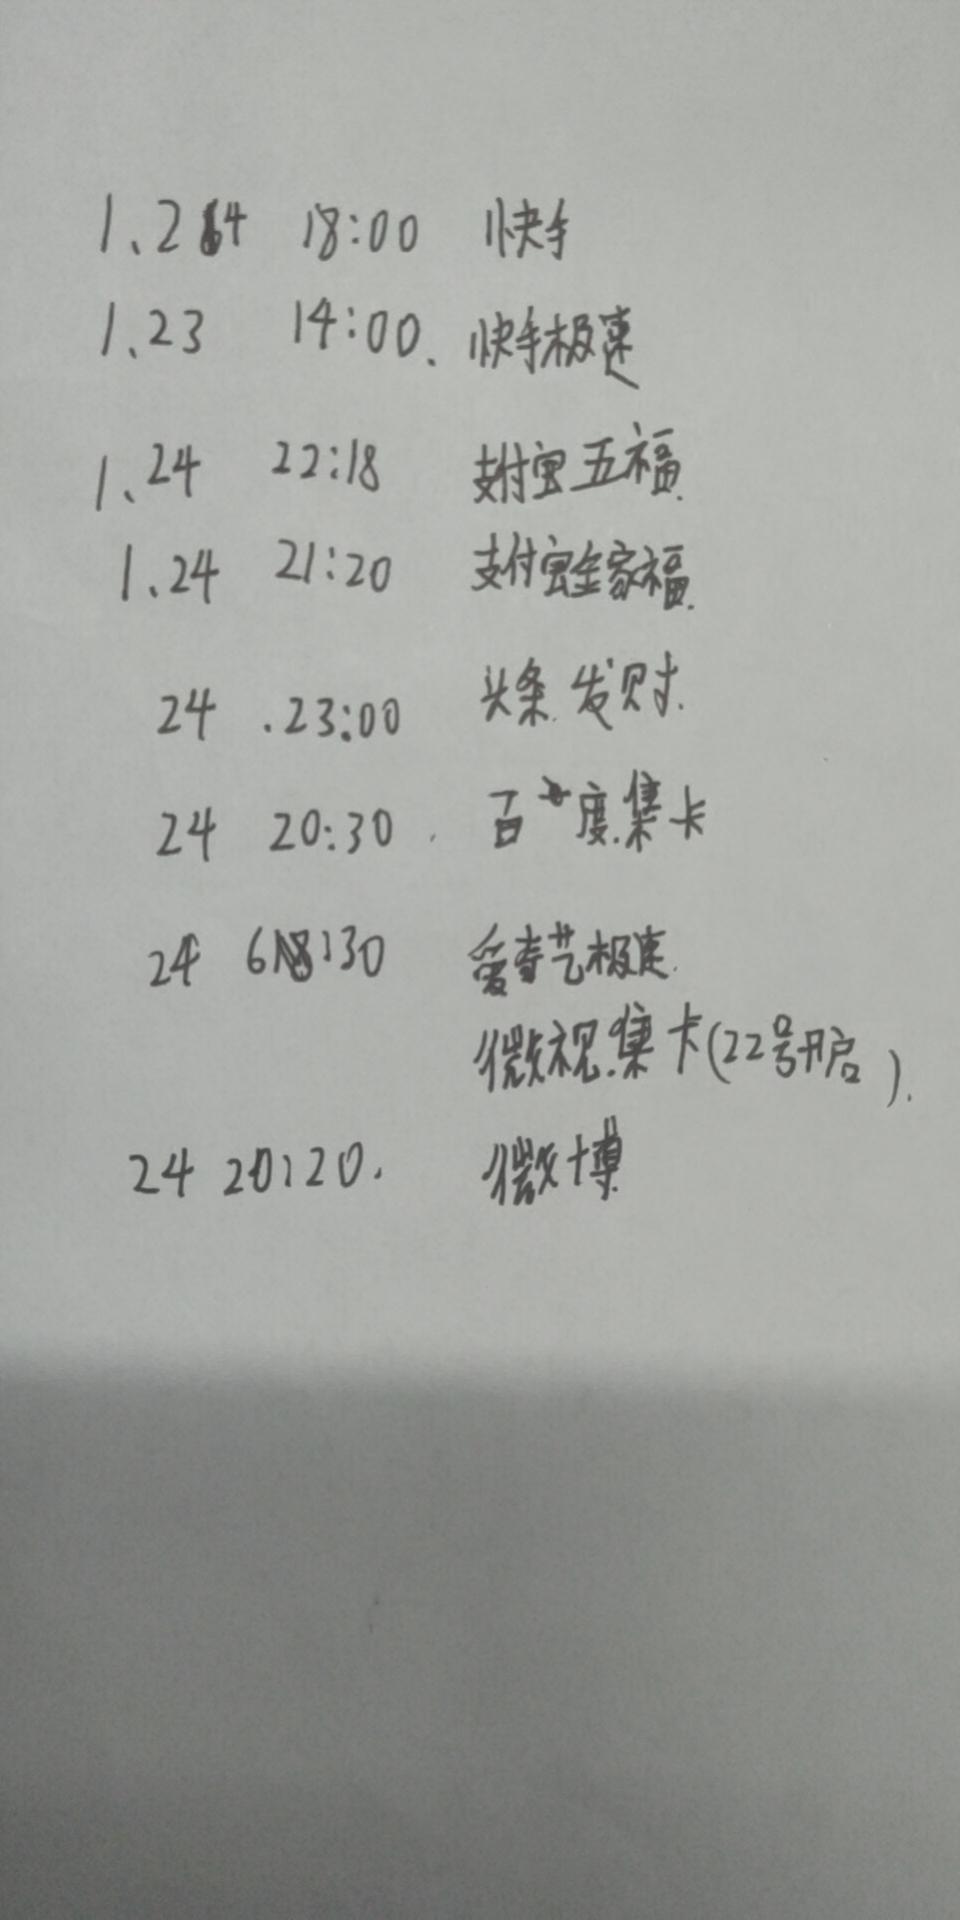 1.24 18:00 快手
1.23 14:00. 快手极速
1.24 22:18 支付宝五福.
1.24 21:20 支付宝全家福.
24 .23:00 头条.发财.
24 20:30. 百度.集卡
24 18:30 爱奇艺极速.
微视.集卡(22号开启).
24 20:20. 微博